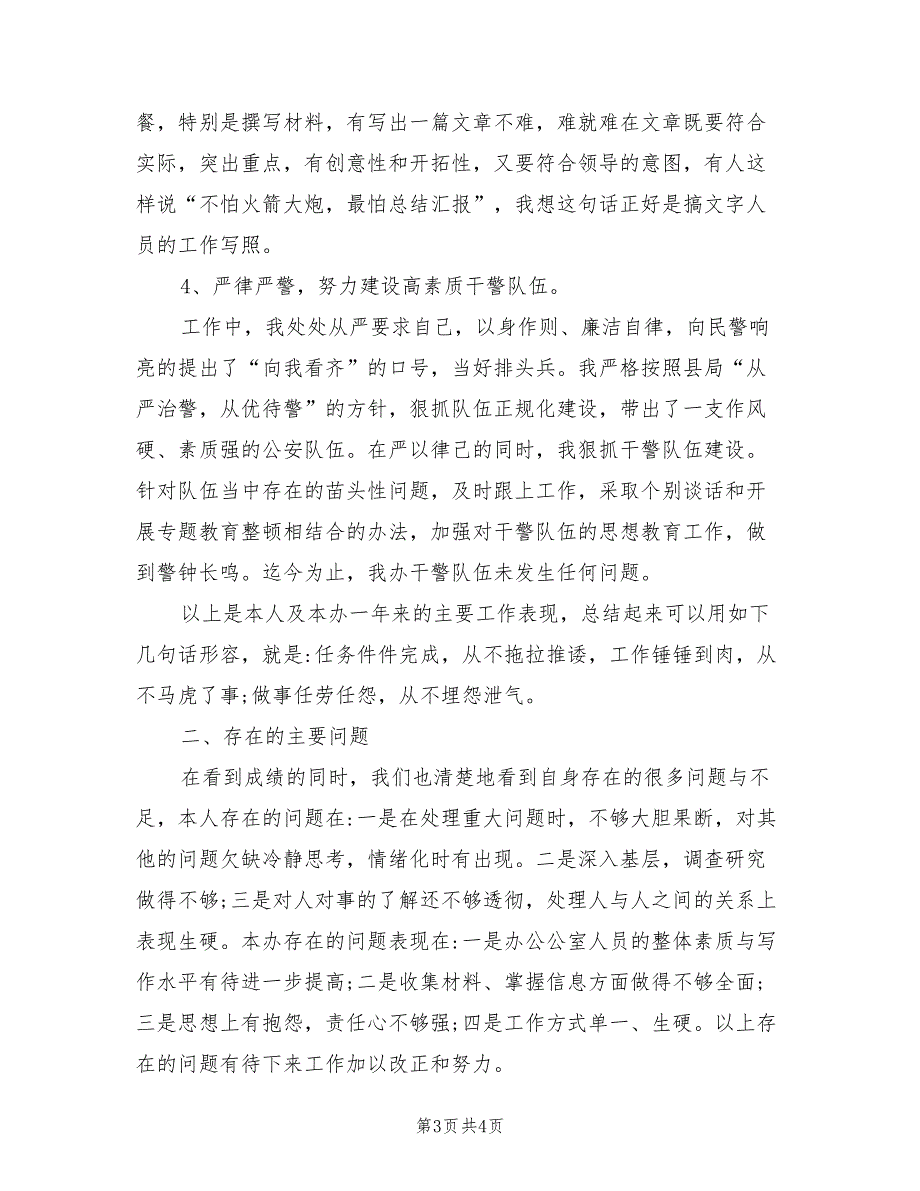 餐，特别是撰写材料，有写出一篇文章不难，难就难在文章既要符合
实际，突出重点，有创意性和开拓性，又要符合领导的意图，有人这
样说“不怕火箭大炮，最怕总结汇报”，我想这句话正好是搞文字人
员的工作写照。
4、严律严警，努力建设高素质干警队伍。
工作中，我处处从严要求自己，以身作则、廉洁自律，向民警响
亮的提出了“向我看齐”的口号，当好排头兵。我严格按照县局“从
严治警，从优待警”的方针，狠抓队伍正规化建设，带出了一支作风
硬、素质强的公安队伍。在严以律己的同时，我狠抓干警队伍建设。
针对队伍当中存在的苗头性问题，及时跟上工作，采取个别谈话和开
展专题教育整顿相结合的办法，加强对干警队伍的思想教育工作，做
到警钟长鸣。迄今为止，我办干警队伍未发生任何问题。
以上是本人及本办一年来的主要工作表现，总结起来可以用如下
几句话形容，就是:任务件件完成，从不拖拉推诿，工作锤锤到肉，从
不马虎了事;做事任劳任怨，从不埋怨泄气。
二、存在的主要问题
在看到成绩的同时，我们也清楚地看到自身存在的很多问题与不
足，本人存在的问题在:一是在处理重大问题时，不够大胆果断，对其
他的问题欠缺冷静思考，情绪化时有出现。二是深入基层，调查研究
做得不够;三是对人对事的了解还不够透彻，处理人与人之间的关系上
表现生硬。本办存在的问题表现在:一是办公公室人员的整体素质与写
作水平有待进一步提高;二是收集材料、掌握信息方面做得不够全面;
三是思想上有抱怨，责任心不够强;四是工作方式单一、生硬。以上存
在的问题有待下来工作加以改正和努力。
第3页共4页